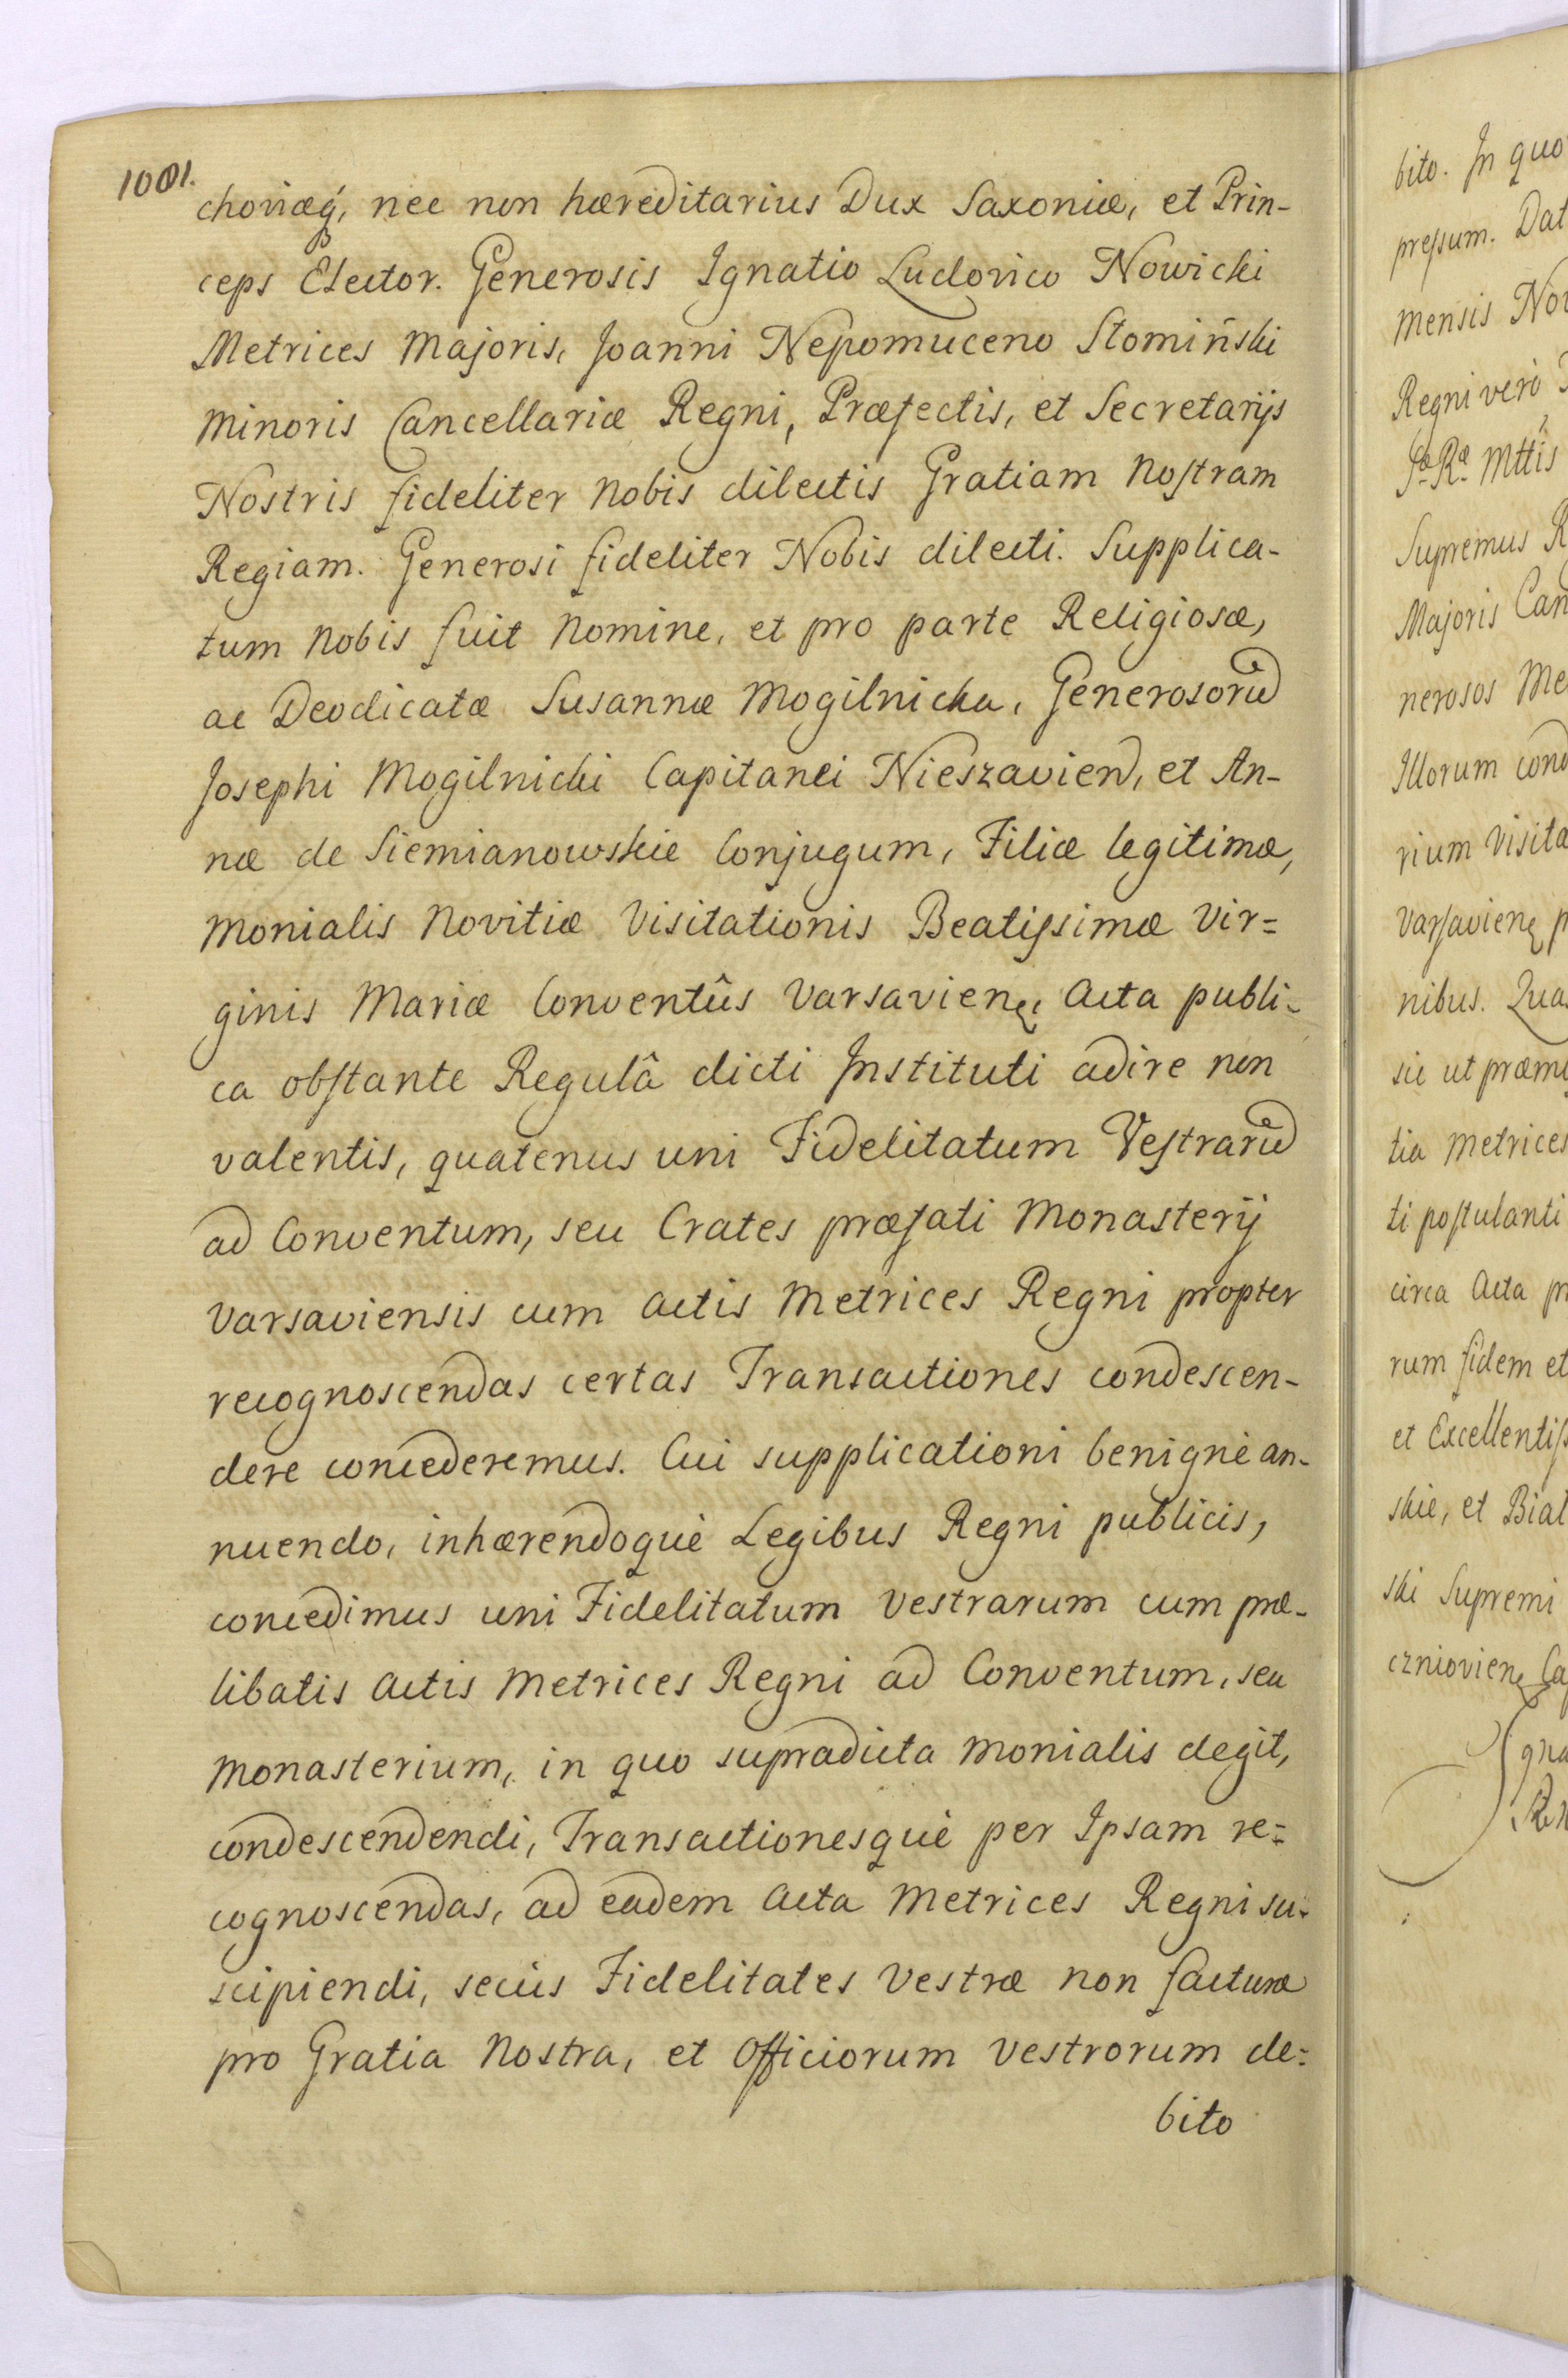 1001.
choviæq́, nec non hæreditarius Dux Saxoniæ, et Prin-
ceps Elector. Generosis Ignatio Ludovico Nowicki
Metrices Majoris, Joanni Nepomuceno Słomiński
Minoris Cancellariæ Regni, Præfectis, et Secretarijs
Nostris fideliter Nobis dilectis Gratiam Nostram
Regiam. Generosi fideliter Nobis dilecti. Supplica-
tum Nobis fuit Nomine, et pro parte Religiosæ,
ac Deodicatæ Susannæ Mogilnicka, Generosorū
Josephi Mogilnicki Capitanei Nieszavien, et An-
næ de Siemianowskie Conjugum, Filiæ legitimæ,
Monialis Novitiæ Visitationis Beatissimæ Vir=
ginis Mariæ Conventûs Varsavien, Acta publi-
ca obstante Regulâ dicti Instituti adire non
valentis, quatenus uni Fidelitatum Vestrarū
ad Conventum, seu Crates præfati Monasterij
Varsaviensis cum Actis Metrices Regni propter
recognoscendas certas Transactiones condescen-
dere concederemus. Cui supplicationi benignè an-
nuendo, inhærendoquè Legibus Regni publicis,
concedimus uni Fidelitatum Vestrarum cum præ-
libatis Actis Metrices Regni ad Conventum, seu
Monasterium, in quo supradicta Monialis degit,
condescendendi, Transactionesquè per Ipsam re=
cognoscendas, ad eadem Acta Metrices Regni su=
scipiendi, secùs Fidelitates Vestræ non facturæ
pro Gratia Nostra, et Officiorum Vestrorum de=
bito
bito. In quo
pressum. Dat
Mensis Nov
Regni verò
Sæ Ræ Mttis
Supremus R
Majoris Can
nerosos Me
Illorum cond
rium Visita
Varsavien p
nibus. Qua
sic ut præmi
tia Metrices
ti postulanti
circa Acta pr
rum fidem et
et Excellentiss
skie, et Biał
ski Supremi
czniovien Ca
Igna